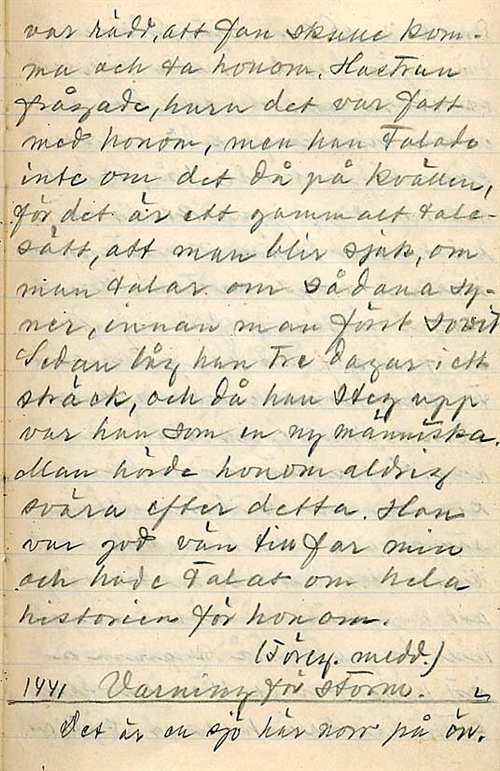 var rädd, att fan skulle kom-
ma och ta honom. Hustrun
frågade, huru det var fatt
med honom, men han talade
inte om det då på kvällen,
för det är ett gammalt tale-
sätt, att man blir sjuk, om
man talar om sådana sy-
ner, innan man först sovit
Sedan låg han tre dagar i ett
sträck, och då han steg upp
var han som en ny människa.
Man hörde honom aldrig
svära efter detta. Han
var god vän till far min
och hade talat om hela
historien för honom.
(Föreg. medd.)
1441 Varning för storm.
Det är en sjö här norr på ön.